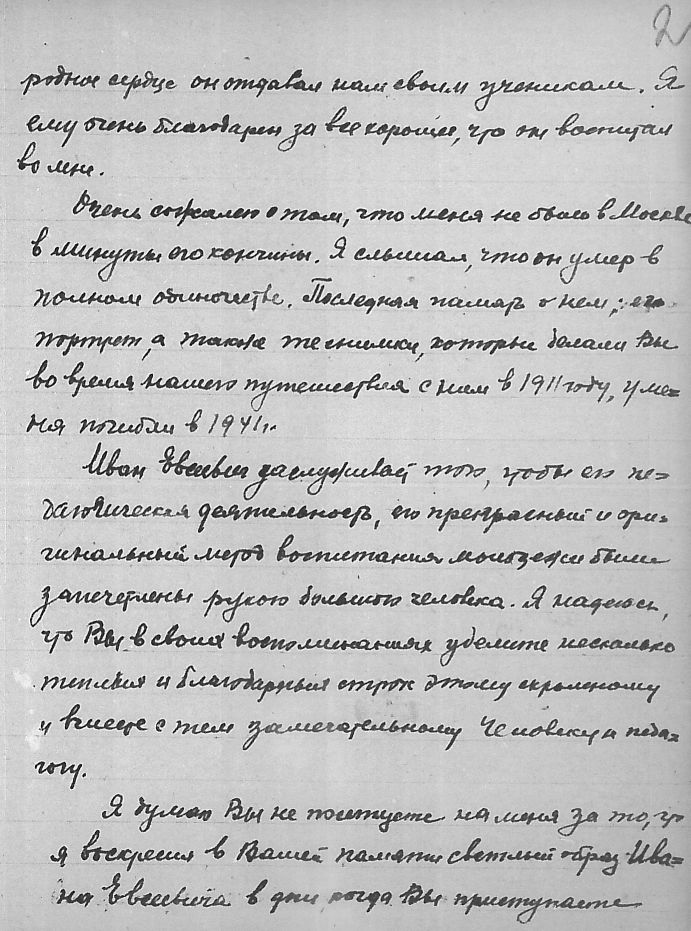 2
родное сердце он отдавал нам своим ученикам. Я
ему очень благодарен за все хорошее, что он воспитал
во мне.
Очень сожалею о том, что меня не было в Москве
в минуты его кончины. Я слышал, что он умер в
полном одиночестве. Последняя память о нем; его
портрет, а также те снимки, которые делали Вы
во время нашего путешествия с ним в 1911 году, у ме-
ня погибли в 1941 г.
Иван Евсеевич заслуживает того, чтобы его пе-
дагогическая деятельность, его прекрасный и ори-
гинальный метод воспитания молодежи были
запечетлены рукою большого человека. Я надеюсь,
что Вы в своих воспоминаниях уделите несколько
теплых и благодарных строк этому скромному
и вместе с тем замечательному Человеку и педа-
гогу.
Я думаю Вы не посетуете на меня за то, что
я воскресил в Вашей памяти светлый образ Ива-
на Евсеевича в дни когда Вы приступаете